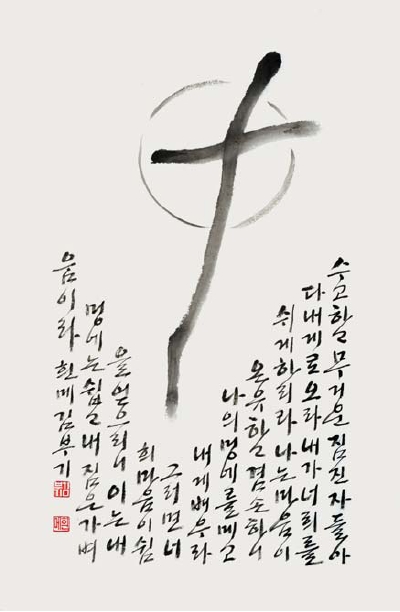 수고하고 무거운 짐진 자들아
다 내게로 오라 내가 너희를
쉬게 하리라 나는 마음이
온유하고 겸손하니
나의 멍에를 메고
내게 배우라
그러면 너
희 마음이 쉼
을 얻으리니 이는 내
멍에는 쉽고 내 짐은 가벼
움이라 흰메 김부기